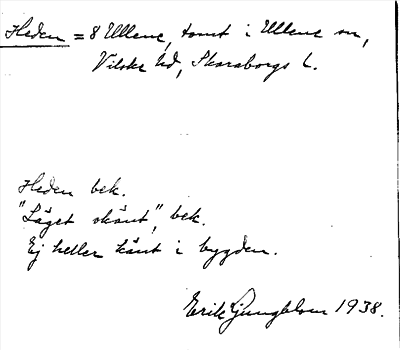 Heden = 8 Ullene, tomt i Ullene sn,
Vilske hd, Skaraborgs l.
Heden bek.
"Läget okänt", bek.
Ej heller känt i bygden.
Erik Ljungblom 1938.